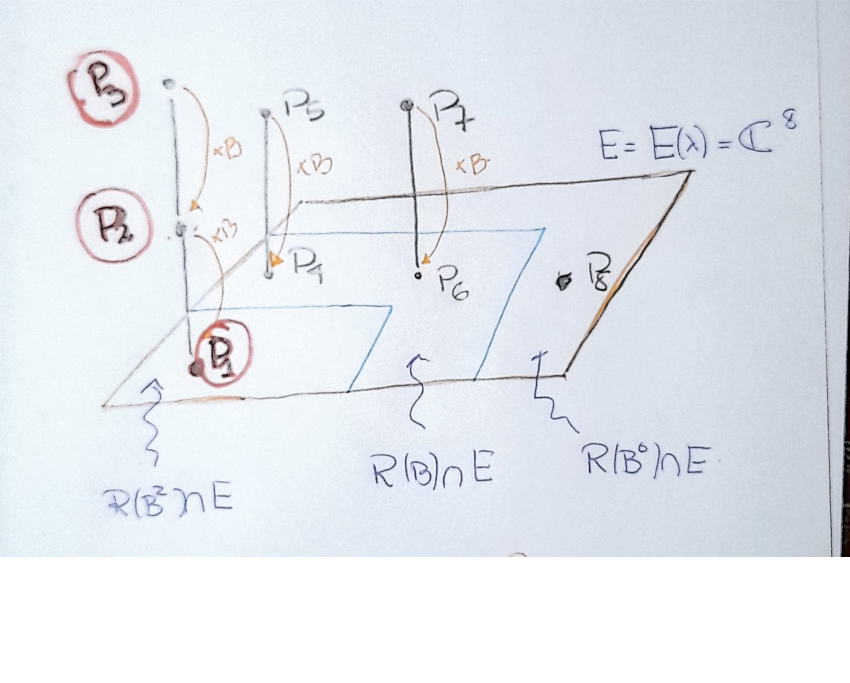 P₃
P₅
P₇
E = E(λ) = ℂ⁸
×B
×B
×B
P₂
×B
P₄
P₆
P₈
P₁
R(B²)∩E
R(B)∩E
R(B⁰)∩E